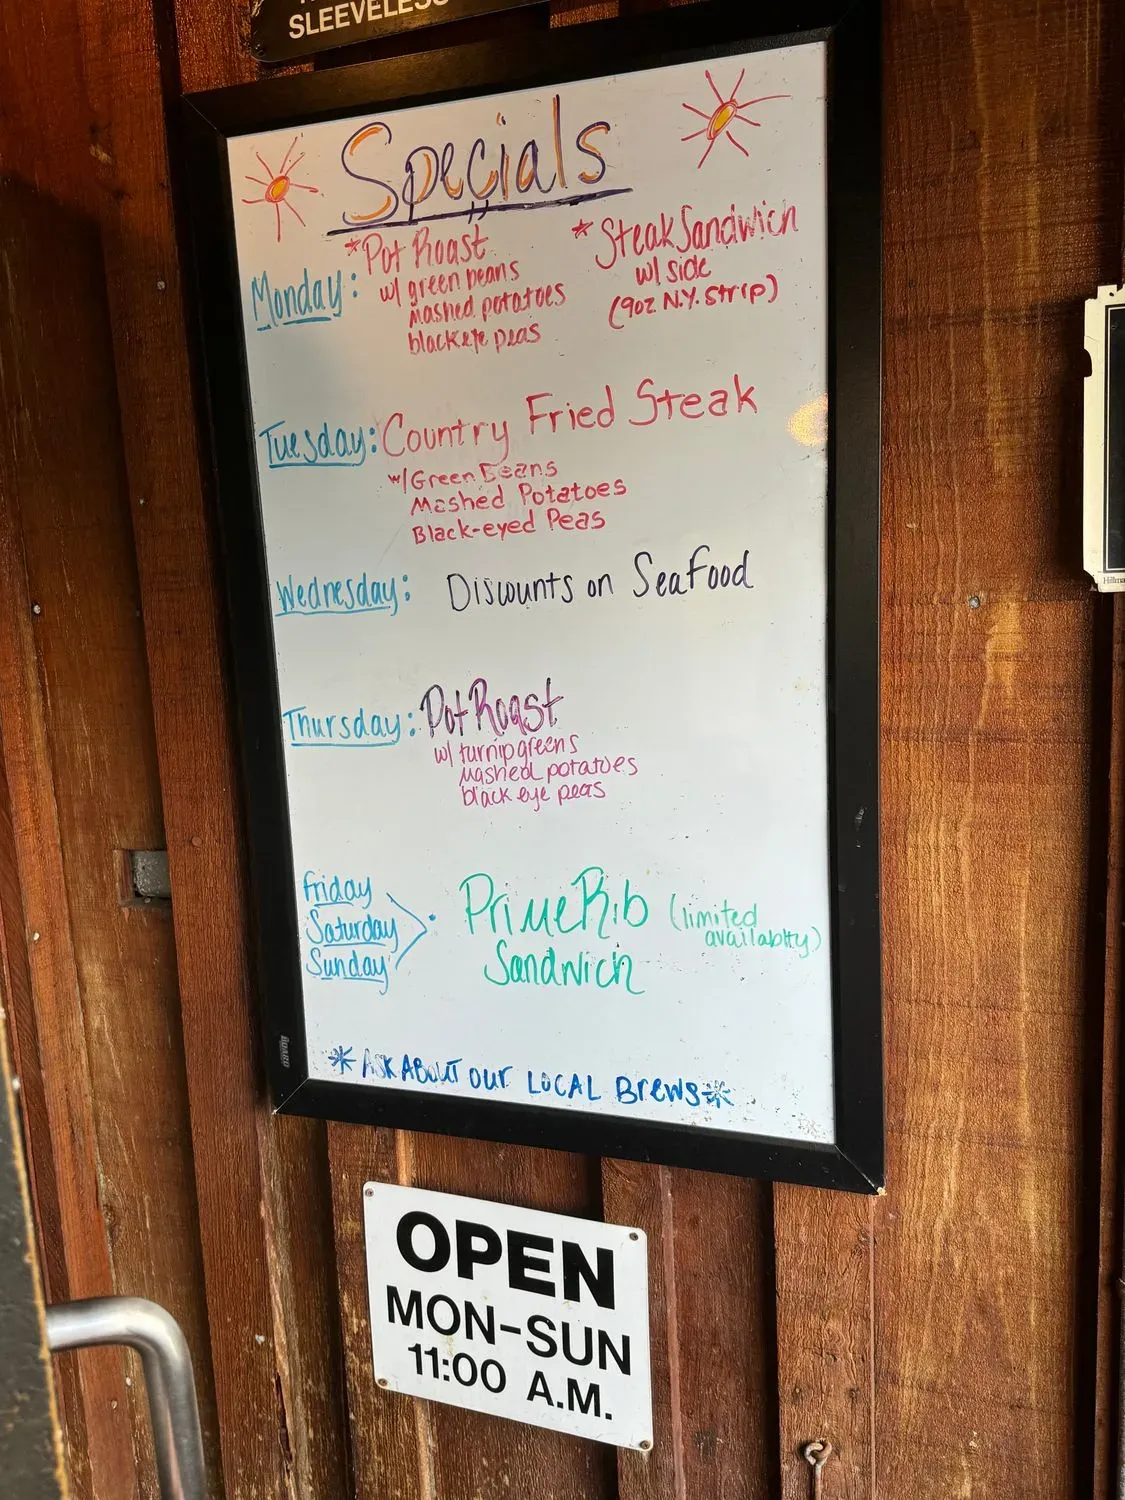 SLEEVELESS
Specials
Monday:
*Pot Roast
w/ green beans
mashed potatoes
blackeye peas
*Steak Sandwich
w/ side
(9oz N.Y. Strip)
Tuesday: Country Fried Steak
w/ Green Beans
Mashed Potatoes
Black-eyed Peas
Wednesday: Discounts on SeaFood
Thursday: Pot Roast
w/ turnip greens
mashed potatoes
black eye peas
Friday
Saturday
Sunday
Prime Rib (limited
availablty)
Sandwich
*ASK ABOUT OUR LOCAL BREWS*
BOARD
OPEN
MON-SUN
11:00 A.M.